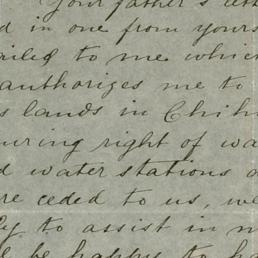 Your father's lett
d in one from yours
ailed to me which
authorizes me to
s lands in Chihu
uring right of wa
d water stations a
re ceded to us, we
ly to assist in m
l be happy to ha